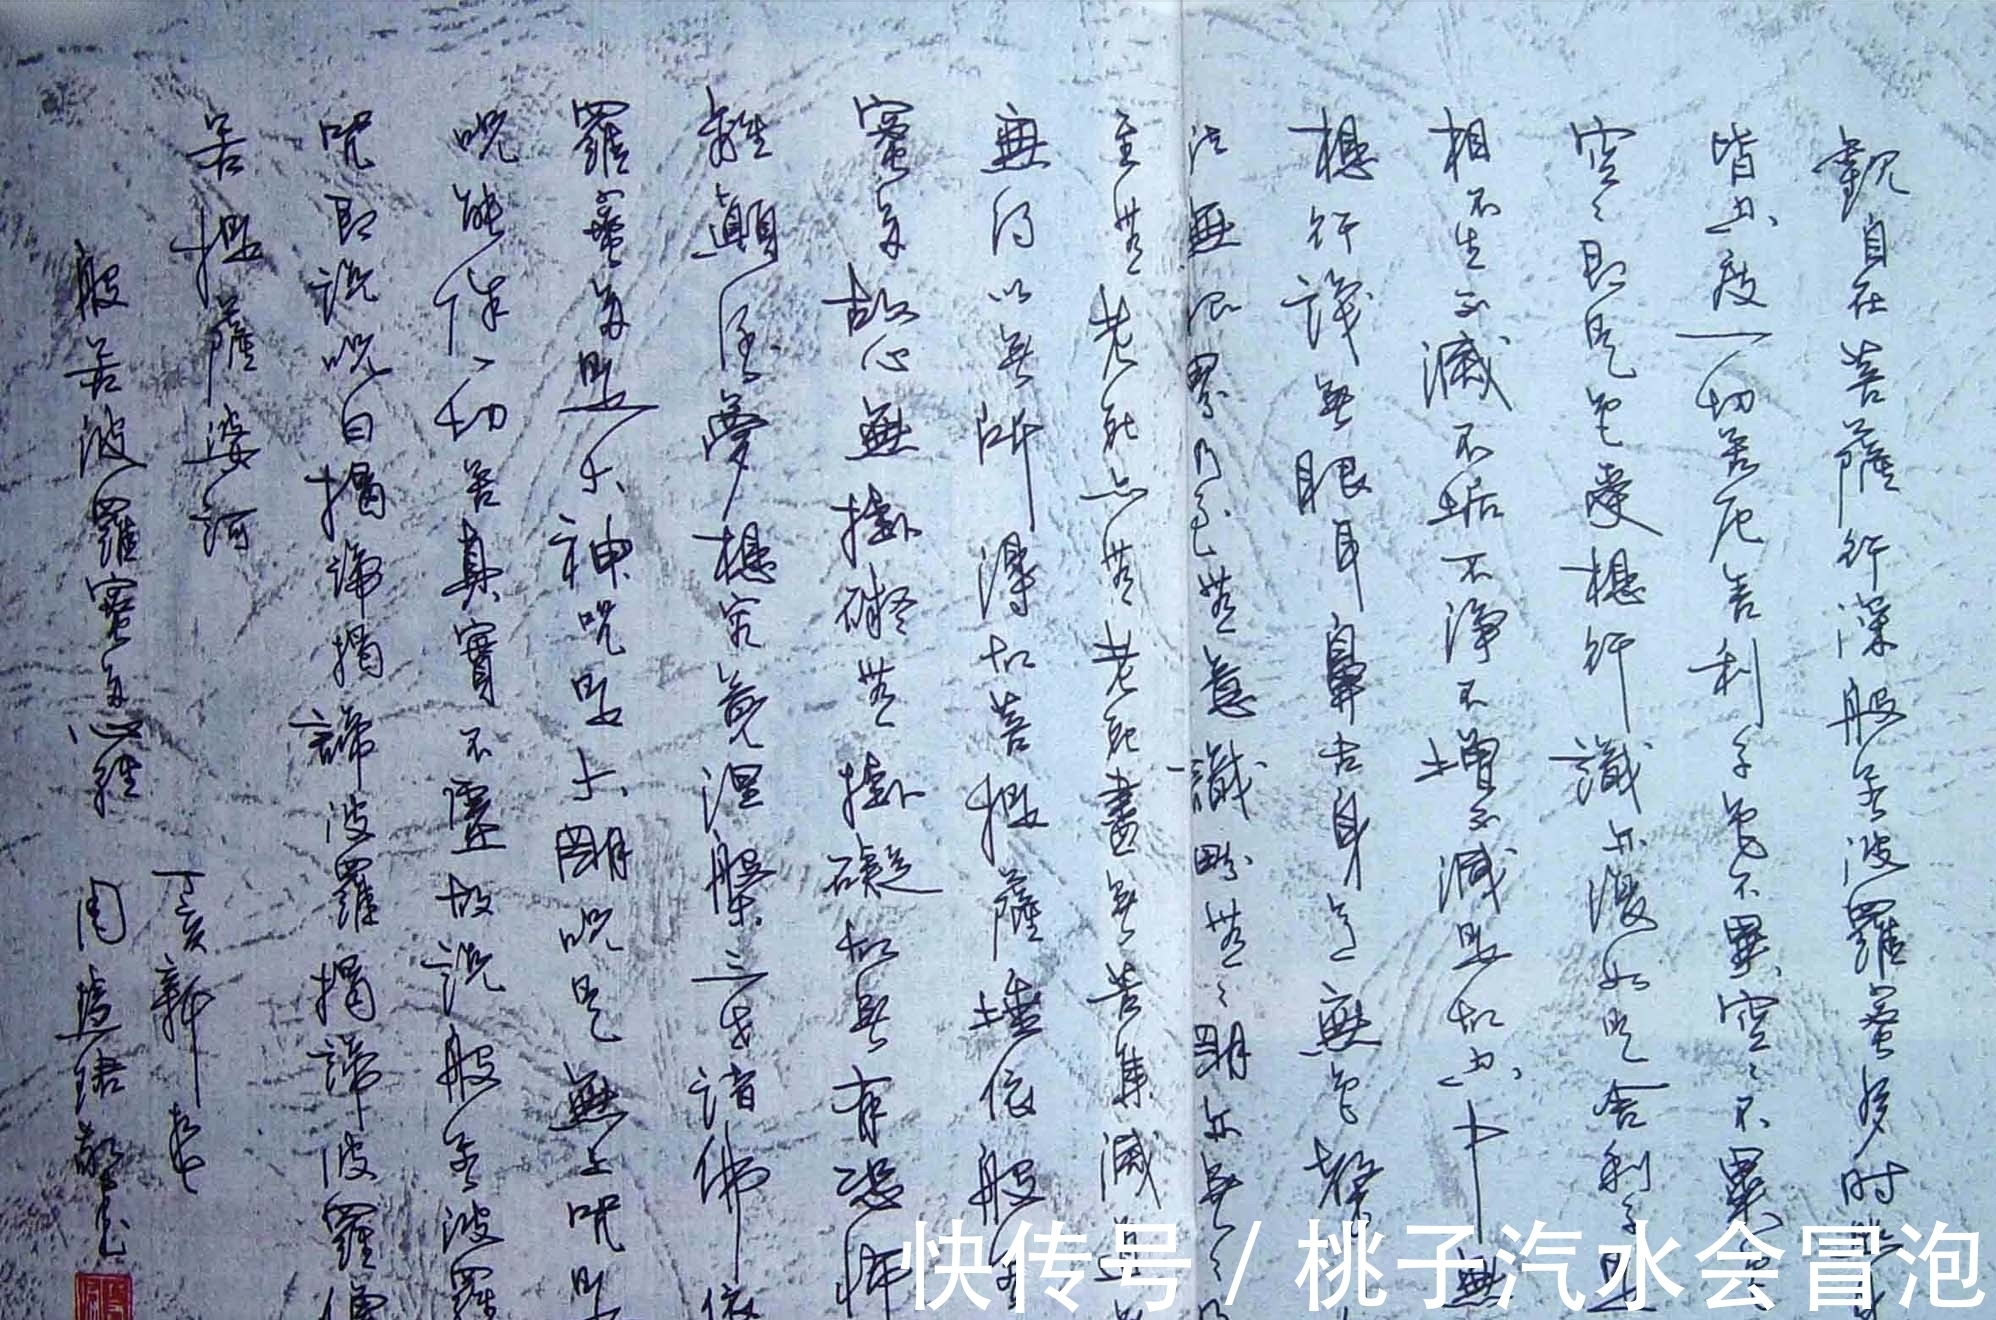 觀自在菩薩行深般若波羅蜜多時照見
皆空度一切苦厄舍利子色不異空空不異色
空空即是色受想行識亦復如是舍利子是
相不生不滅不垢不淨不增不減是故空中無
想行識無眼耳鼻舌身意無色聲
法無眼界乃至無意識界無無明亦無無
至無老死亦無老死盡無苦集滅道
無得以無所得故菩提薩埵依般若
蜜多故心無掛礙無掛礙故無有恐怖
離顛倒夢想究竟涅槃三世諸佛依
羅蜜多是大神咒是大明咒是無上咒是
咒能除一切苦真實不虛故說般若波羅
咒即說咒曰揭諦揭諦波羅揭諦波羅僧
若提薩婆訶
般若波羅蜜多心經
丁亥新春
快传号 / 桃子汽水会冒泡